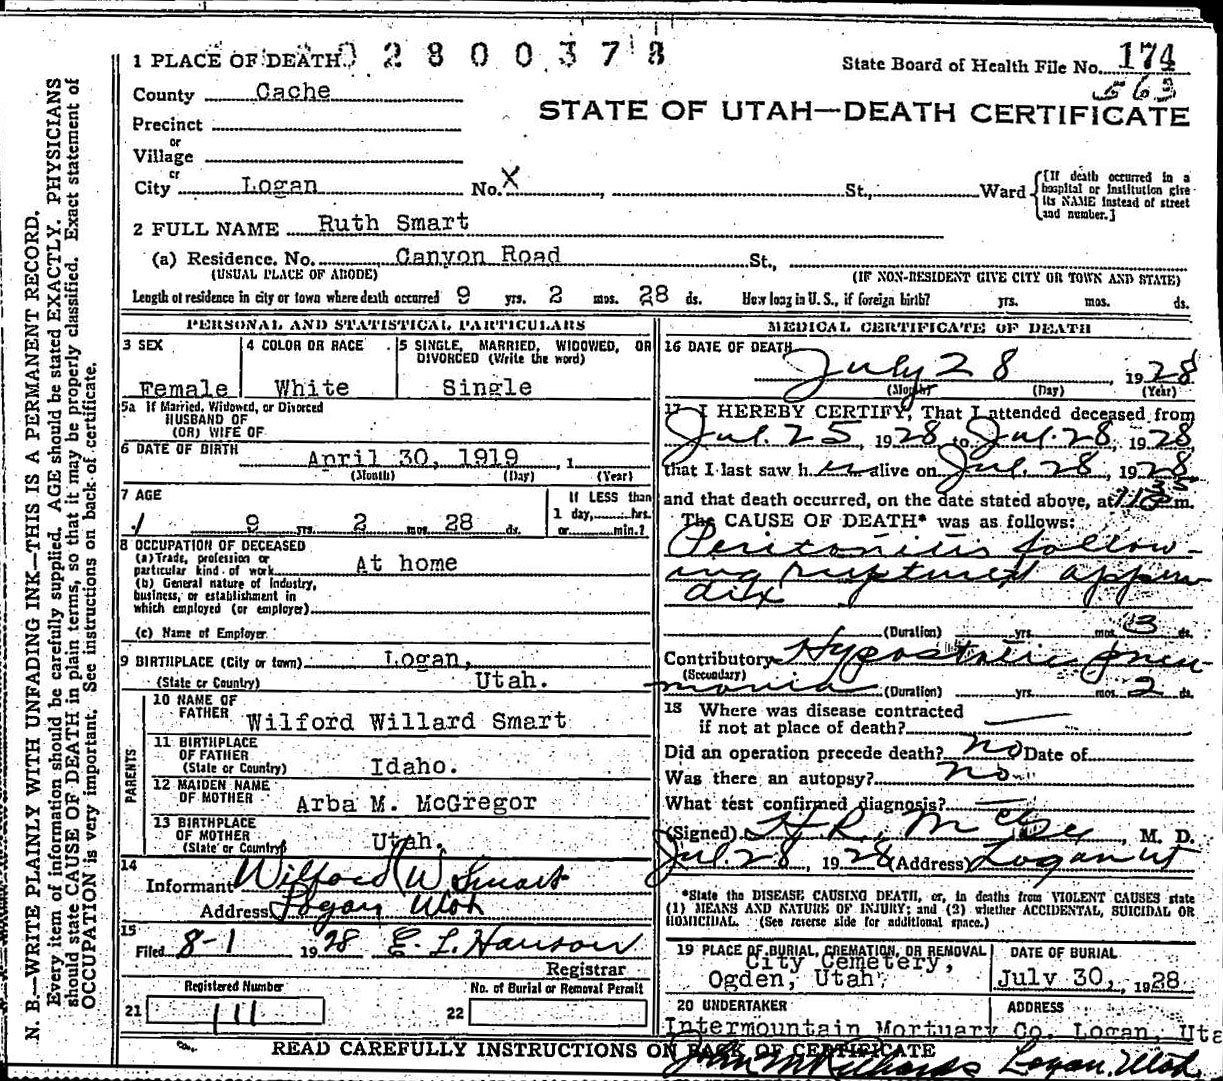 1 PLACE OF DEATH 02800378
State Board of Health File No. 174
563
County Cache
STATE OF UTAH—DEATH CERTIFICATE
Precinct
or
Village
or
City Logan No. X St., Ward
[If death occurred in a hospital or institution give its NAME instead of street and number.]
2 FULL NAME Ruth Smart
(a) Residence. No. Canyon Road St.,
(USUAL PLACE OF ABODE) (IF NON-RESIDENT GIVE CITY OR TOWN AND STATE)
Length of residence in city or town where death occurred 9 yrs. 2 mos. 28 ds. How long in U.S., if foreign birth? yrs. mos. ds.
PERSONAL AND STATISTICAL PARTICULARS
3 SEX
Female
4 COLOR OR RACE
White
5 SINGLE, MARRIED, WIDOWED, OR
DIVORCED (Write the word)
Single
5a If Married, Widowed, or Divorced
HUSBAND OF
(OR) WIFE OF
6 DATE OF BIRTH April 30, 1919, 1
(Month) (Day) (Year)
7 AGE
9 yrs. 2 mos. 28 ds.
If LESS than
1 day, hrs.
or min.?
8 OCCUPATION OF DECEASED
(a) Trade, profession or
particular kind of work At home
(b) General nature of Industry,
business, or establishment in
which employed (or employer)
(c) Name of Employer
9 BIRTHPLACE (City or town) Logan,
(State or Country) Utah.
PARENTS
10 NAME OF
FATHER Wilford Willard Smart
11 BIRTHPLACE
OF FATHER
(State or Country) Idaho.
12 MAIDEN NAME
OF MOTHER Arba M. McGregor
13 BIRTHPLACE
OF MOTHER
(State or Country) Utah.
14
Informant Wilford W Smart
Address Logan Utah
15
Filed 8-1 1928 E. L. Hanson
Registrar
Registered Number
21 111
No. of Burial or Removal Permit
22
MEDICAL CERTIFICATE OF DEATH
16 DATE OF DEATH
July 28, 1928
(Month) (Day) (Year)
17 I HEREBY CERTIFY, That I attended deceased from
Jul. 25, 1928 to Jul. 28, 1928,
that I last saw her alive on Jul. 28, 1928
and that death occurred, on the date stated above, at m.
The CAUSE OF DEATH* was as follows:
Peritonitis follow-
ing ruptured appen
dix
(Duration) yrs. mos. 3 ds.
Contributory Hypostatic pneu
(Secondary)
monia (Duration) yrs. mos. 2 ds.
18 Where was disease contracted
if not at place of death?
Did an operation precede death? no Date of
Was there an autopsy? no
What test confirmed diagnosis?
(Signed) H. R. McGee, M. D.
Jul. 28, 1928 (Address) Logan Ut
*State the DISEASE CAUSING DEATH, or, in deaths from VIOLENT CAUSES state
(1) MEANS AND NATURE OF INJURY; and (2) whether ACCIDENTAL, SUICIDAL OR
HOMICIDAL. (See reverse side for additional space.)
19 PLACE OF BURIAL, CREMATION, OR REMOVAL
City Cemetery,
Ogden, Utah.
DATE OF BURIAL
July 30, 1928
20 UNDERTAKER ADDRESS
Intermountain Mortuary Co. Logan, Uta
READ CAREFULLY INSTRUCTIONS ON BACK OF CERTIFICATE
John M Richards Logan, Utah.
N. B.—WRITE PLAINLY WITH UNFADING INK—THIS IS A PERMANENT RECORD.
Every item of information should be carefully supplied. AGE should be stated EXACTLY. PHYSICIANS
should state CAUSE OF DEATH in plain terms, so that it may be properly classified. Exact statement of
OCCUPATION is very important. See instructions on back of certificate.